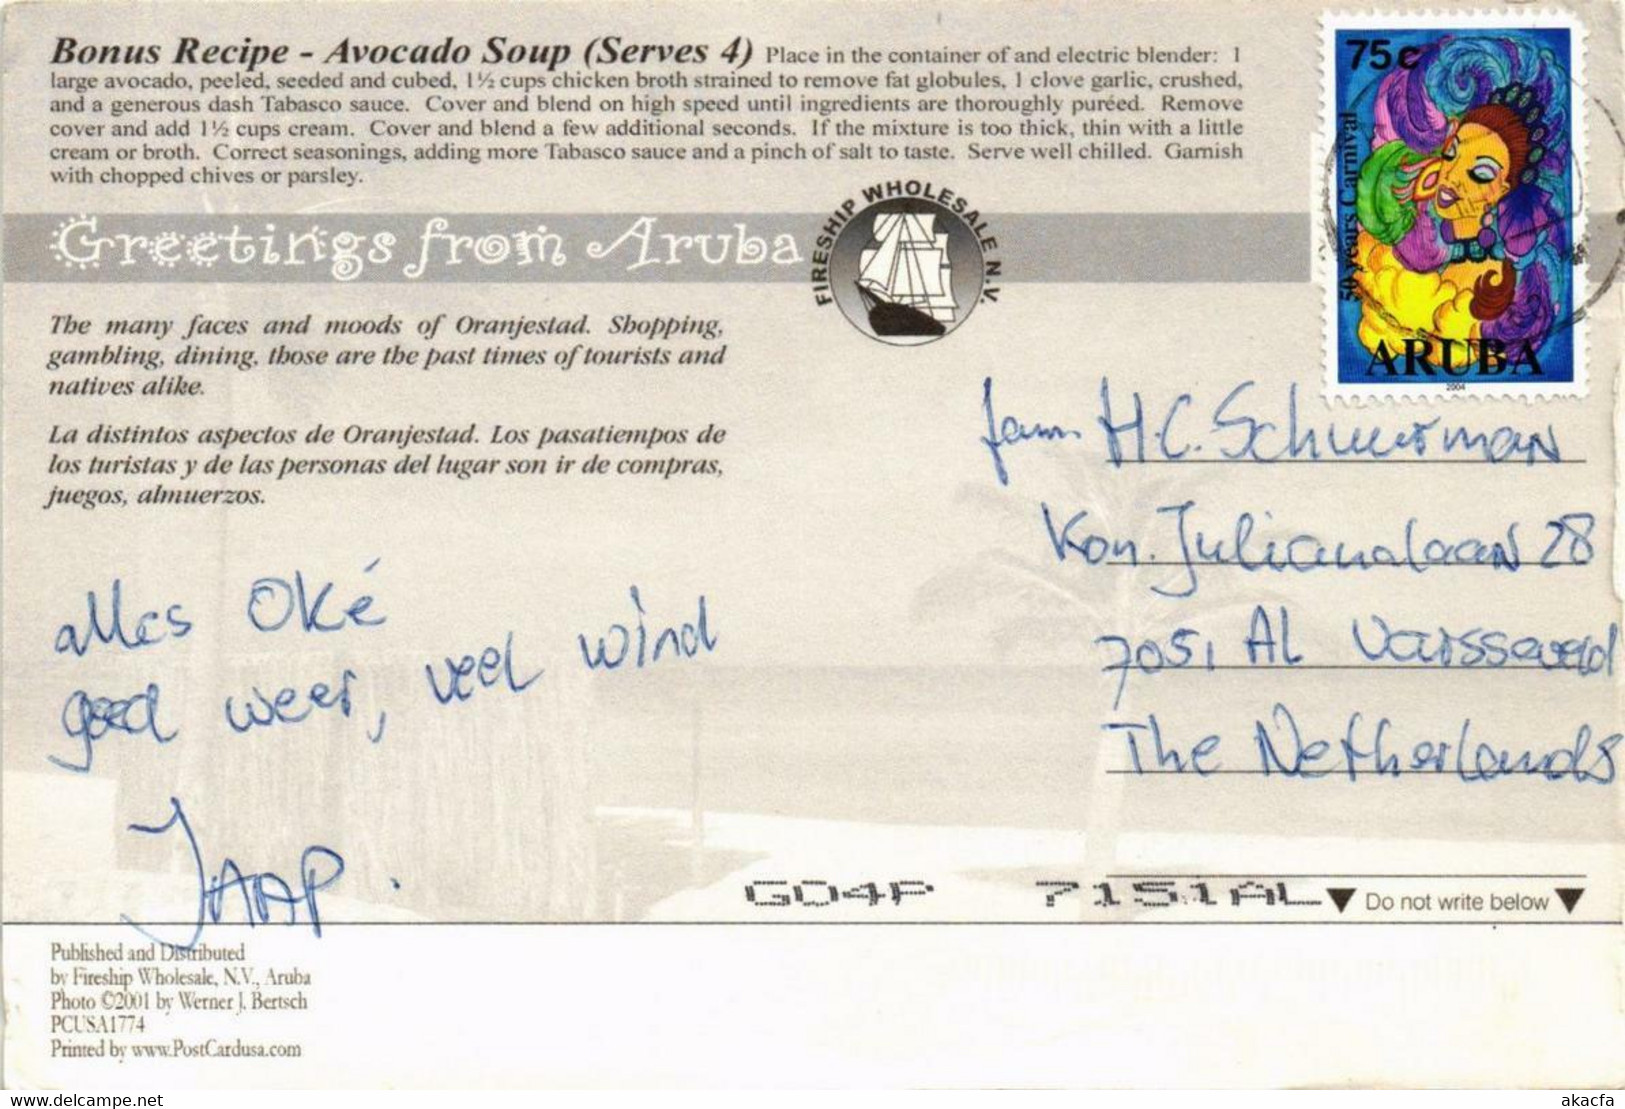 Bonus Recipe - Avocado Soup (Serves 4) Place in the container of and electric blender: 1
large avocado, peeled, seeded and cubed, 1½ cups chicken broth strained to remove fat globules, 1 clove garlic, crushed,
and a generous dash Tabasco sauce. Cover and blend on high speed until ingredients are thoroughly puréed. Remove
cover and add 1½ cups cream. Cover and blend a few additional seconds. If the mixture is too thick, thin with a little
cream or broth. Correct seasonings, adding more Tabasco sauce and a pinch of salt to taste. Serve well chilled. Garnish
with chopped chives or parsley.
75c
50 years Carnival
ARUBA
2004
Greetings from Aruba
FIRESHIP WHOLESALE N.V.
The many faces and moods of Oranjestad. Shopping,
gambling, dining, those are the past times of tourists and
natives alike.
La distintos aspectos de Oranjestad. Los pasatiempos de
los turistas y de las personas del lugar son ir de compras,
juegos, almuerzos.
alles Oké
goed weer, veel wind
JAAP.
fam. H.C. Schuurman
Kon. Julianalaan 28
7051 AL Varsseveld
The Netherlands
GO4P 7151AL
Do not write below
Published and Distributed
by Fireship Wholesale, N.V., Aruba
Photo ©2001 by Werner J. Bertsch
PCUSA1774
Printed by www.PostCardusa.com
www.delcampe.net
akacfa